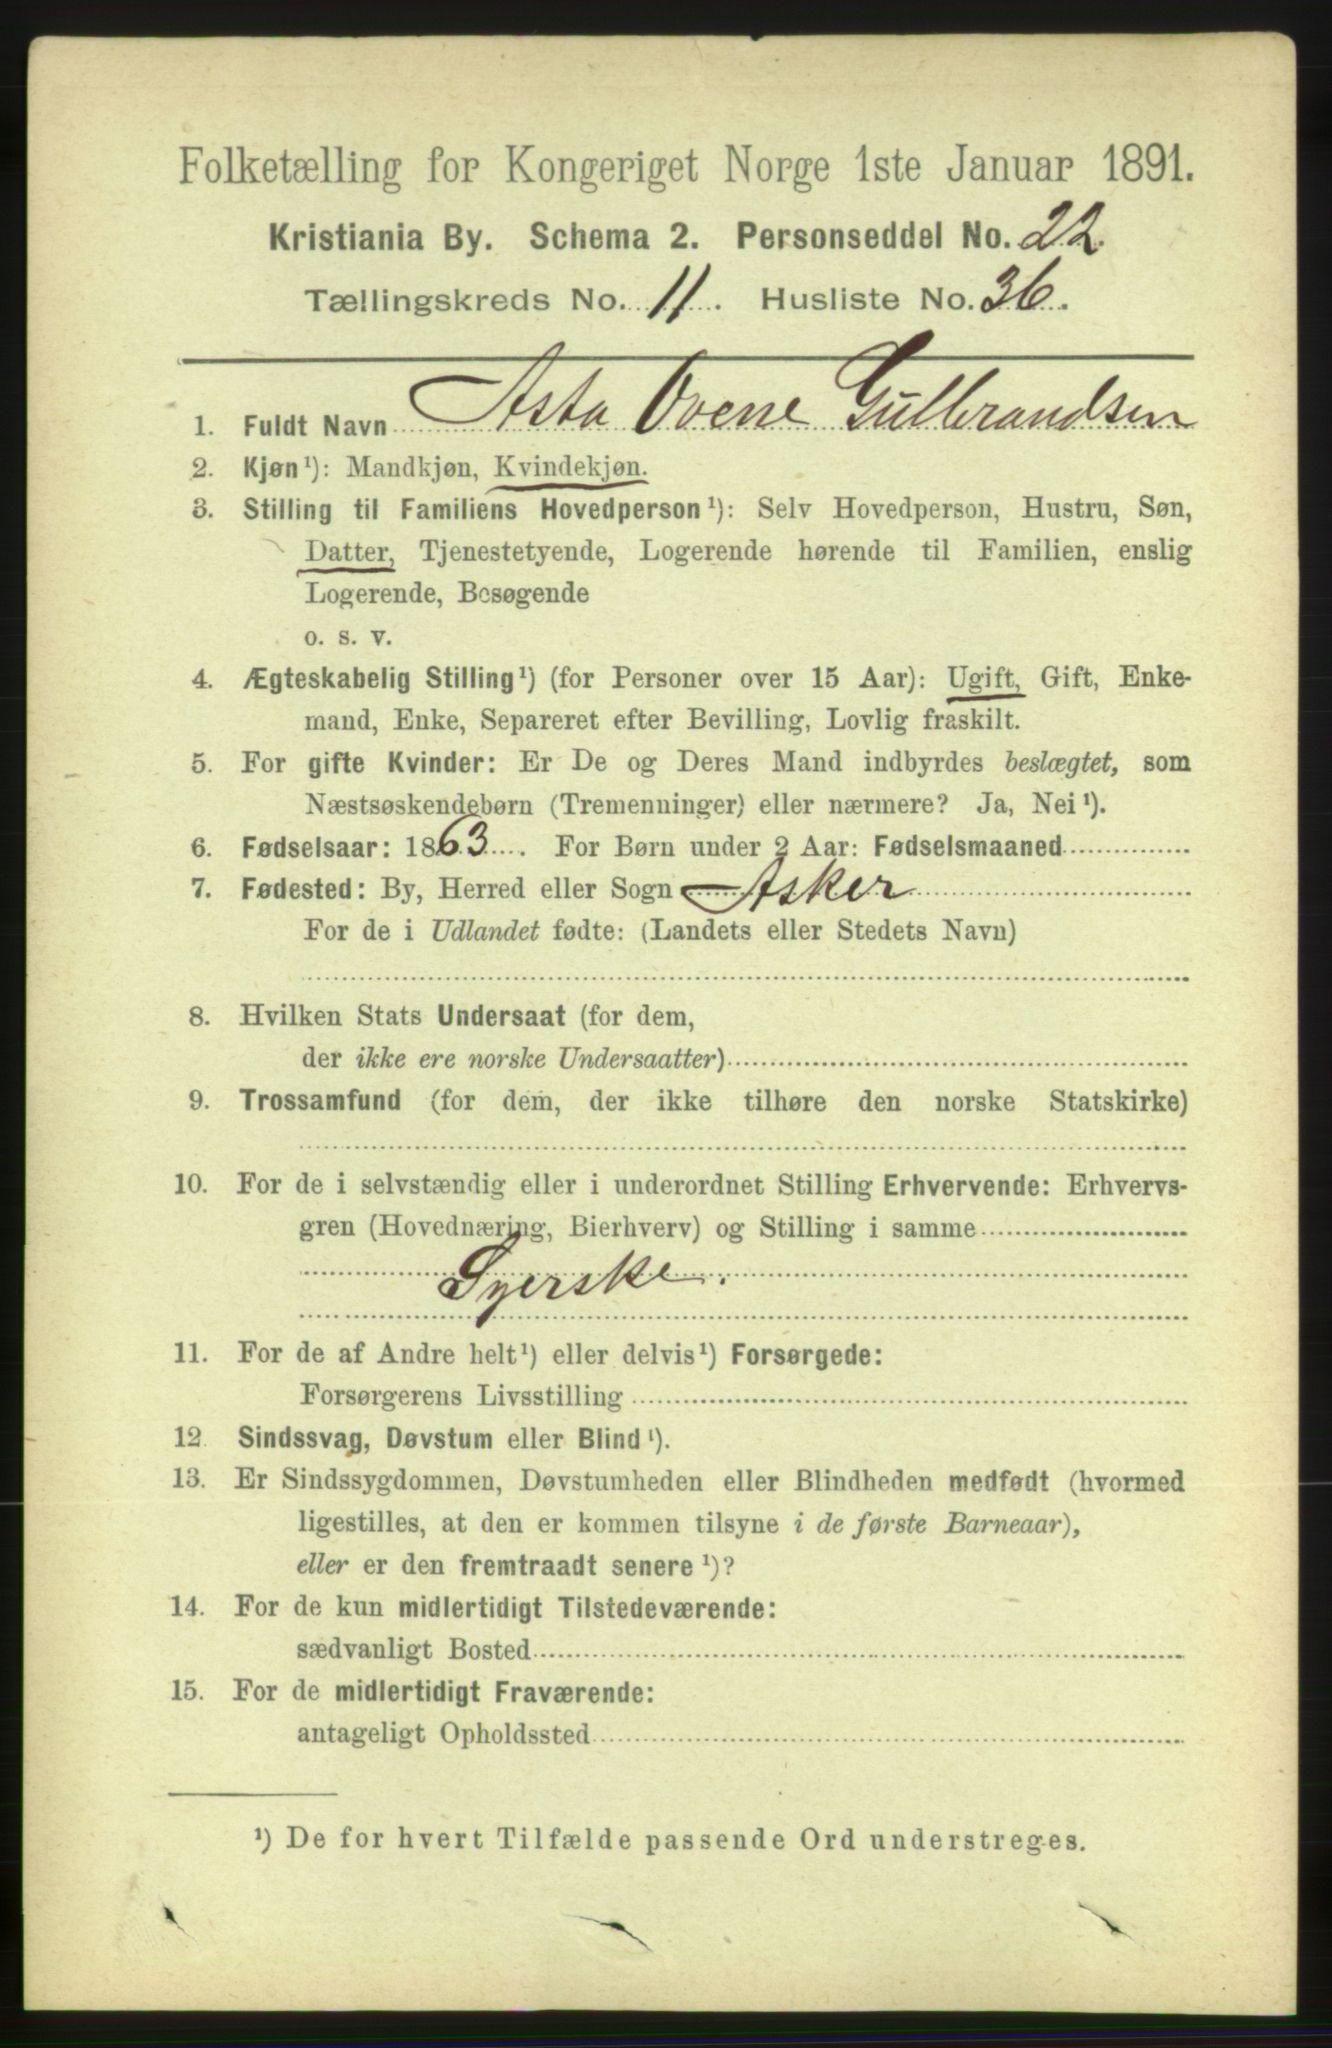 Folketælling for Kongeriget Norge 1ste Januar 1891.
Kristiania By. Schema 2. Personseddel No. 22.
Tællingskreds No. 11. Husliste No. 36.
1. Fuldt Navn Asta Ovene Gulbrandsen
2. Kjøn¹): Mandkjøn, Kvindekjøn.
3. Stilling til Familiens Hovedperson¹): Selv Hovedperson, Hustru, Søn,
Datter, Tjenestetyende, Logerende hørende til Familien, enslig
Logerende, Besøgende
o. s. v.
4. Ægteskabelig Stilling¹) (for Personer over 15 Aar): Ugift, Gift, Enke-
mand, Enke, Separeret efter Bevilling, Lovlig fraskilt.
5. For gifte Kvinder: Er De og Deres Mand indbyrdes beslægtet, som
Næstsøskendebørn (Tremenninger) eller nærmere? Ja, Nei¹).
6. Fødselsaar: 1863. For Børn under 2 Aar: Fødselsmaaned
7. Fødested: By, Herred eller Sogn Asker
For de i Udlandet fødte: (Landets eller Stedets Navn)
8. Hvilken Stats Undersaat (for dem,
der ikke ere norske Undersaatter)
9. Trossamfund (for dem, der ikke tilhøre den norske Statskirke)
10. For de i selvstændig eller i underordnet Stilling Erhvervende: Erhvervs-
gren (Hovednæring, Bierhverv) og Stilling i samme
Syerske.
11. For de af Andre helt¹) eller delvis¹) Forsørgede:
Forsørgerens Livsstilling
12. Sindssvag, Døvstum eller Blind¹).
13. Er Sindssygdommen, Døvstumheden eller Blindheden medfødt (hvormed
ligestilles, at den er kommen tilsyne i de første Barneaar),
eller er den fremtraadt senere¹)?
14. For de kun midlertidigt Tilstedeværende:
sædvanligt Bosted
15. For de midlertidigt Fraværende:
antageligt Opholdssted
¹) De for hvert Tilfælde passende Ord understreges.